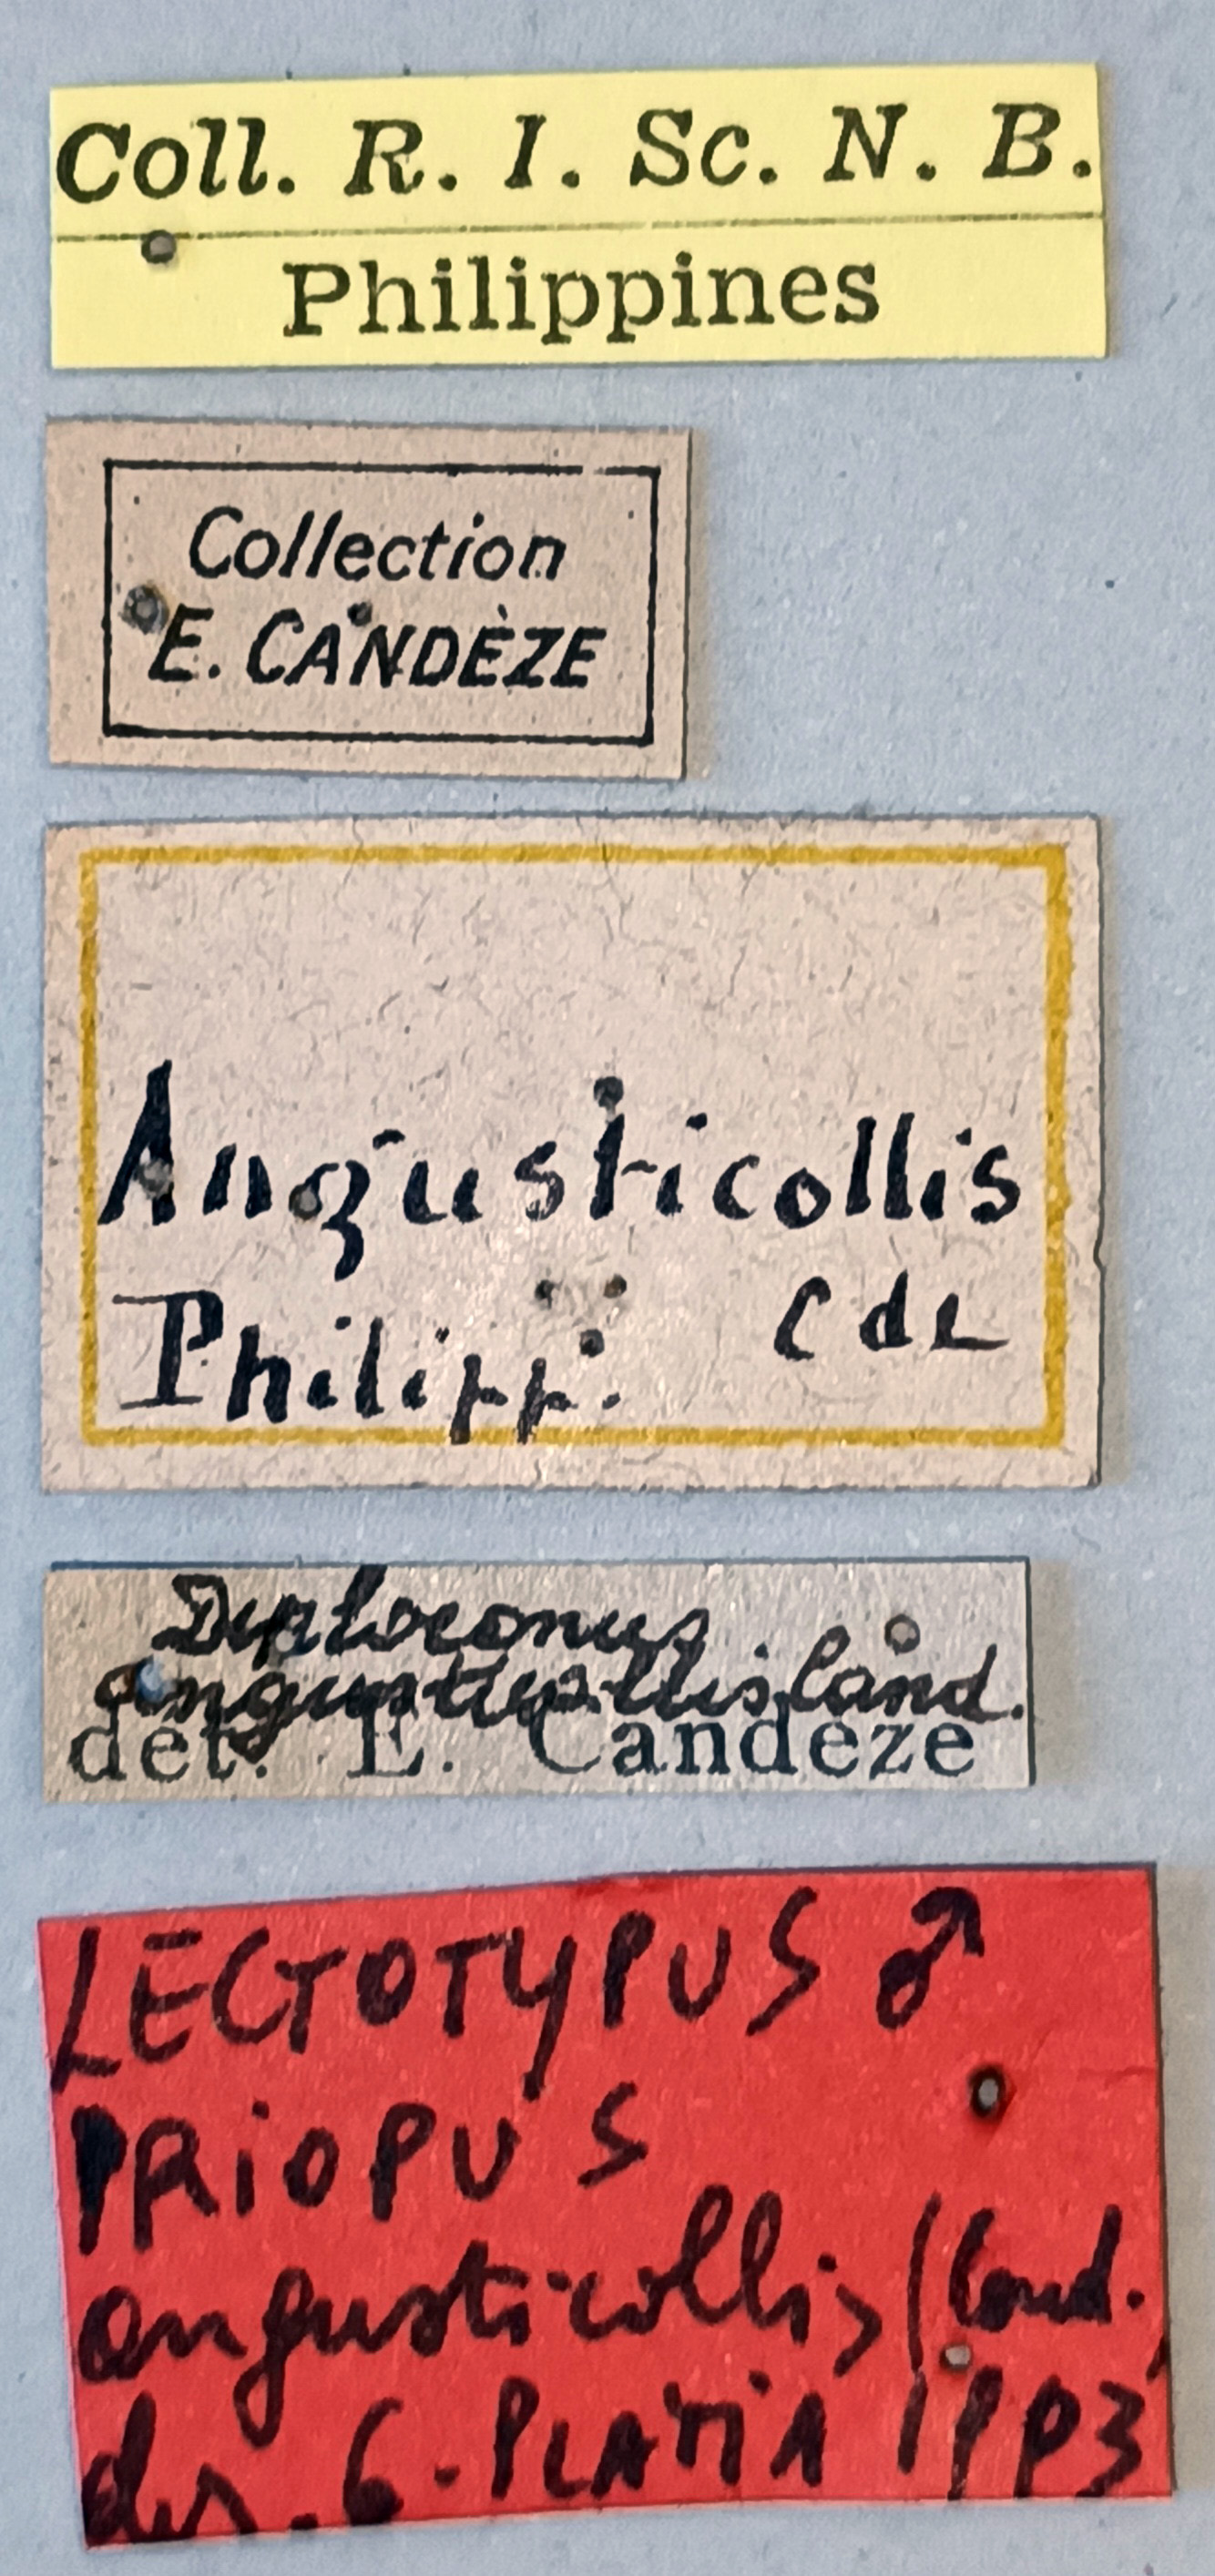 Coll. R. I. Sc. N. B.
Philippines
Collection
E. CANDÈZE
Angusticollis
Cdz
Philipp.
Diploconus
angusticollis Cand.
det. E. Candèze
LECTOTYPUS ♂
PRiOPUS
angusticollis (Cand.)
des. G. PLATiA 1993